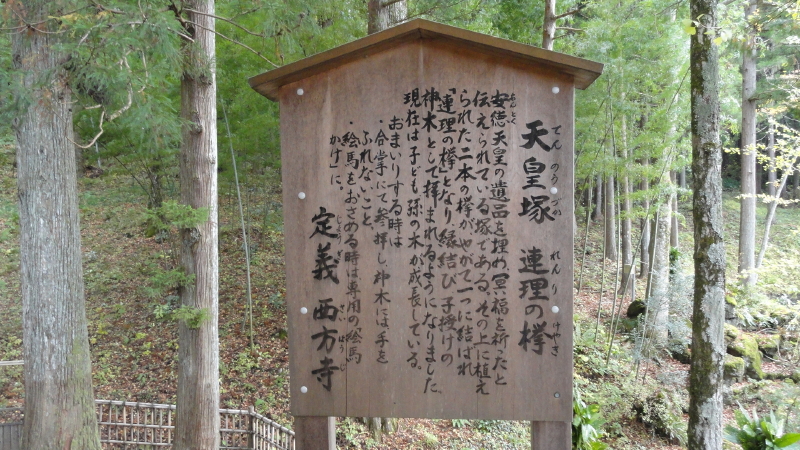 天皇塚 連理の欅
てん のう づの れん り けやき
安徳天皇の遺品を埋め、冥福を祈ったと
あん とく
伝えられている塚である。その上に植え
られた二本の欅がやがて一つに結ばれ
「連理の欅」となり縁結び、子授けの
神木として拝まれるようになりました。
現在は子ども孫の木が成長している。
おまいりする時は
・合掌にて参拝し、神木には手を
ふれないこと。
・絵馬をおさめる時は専用の絵馬
かけに。
定義 西方寺
じょうぎ さいほうじ